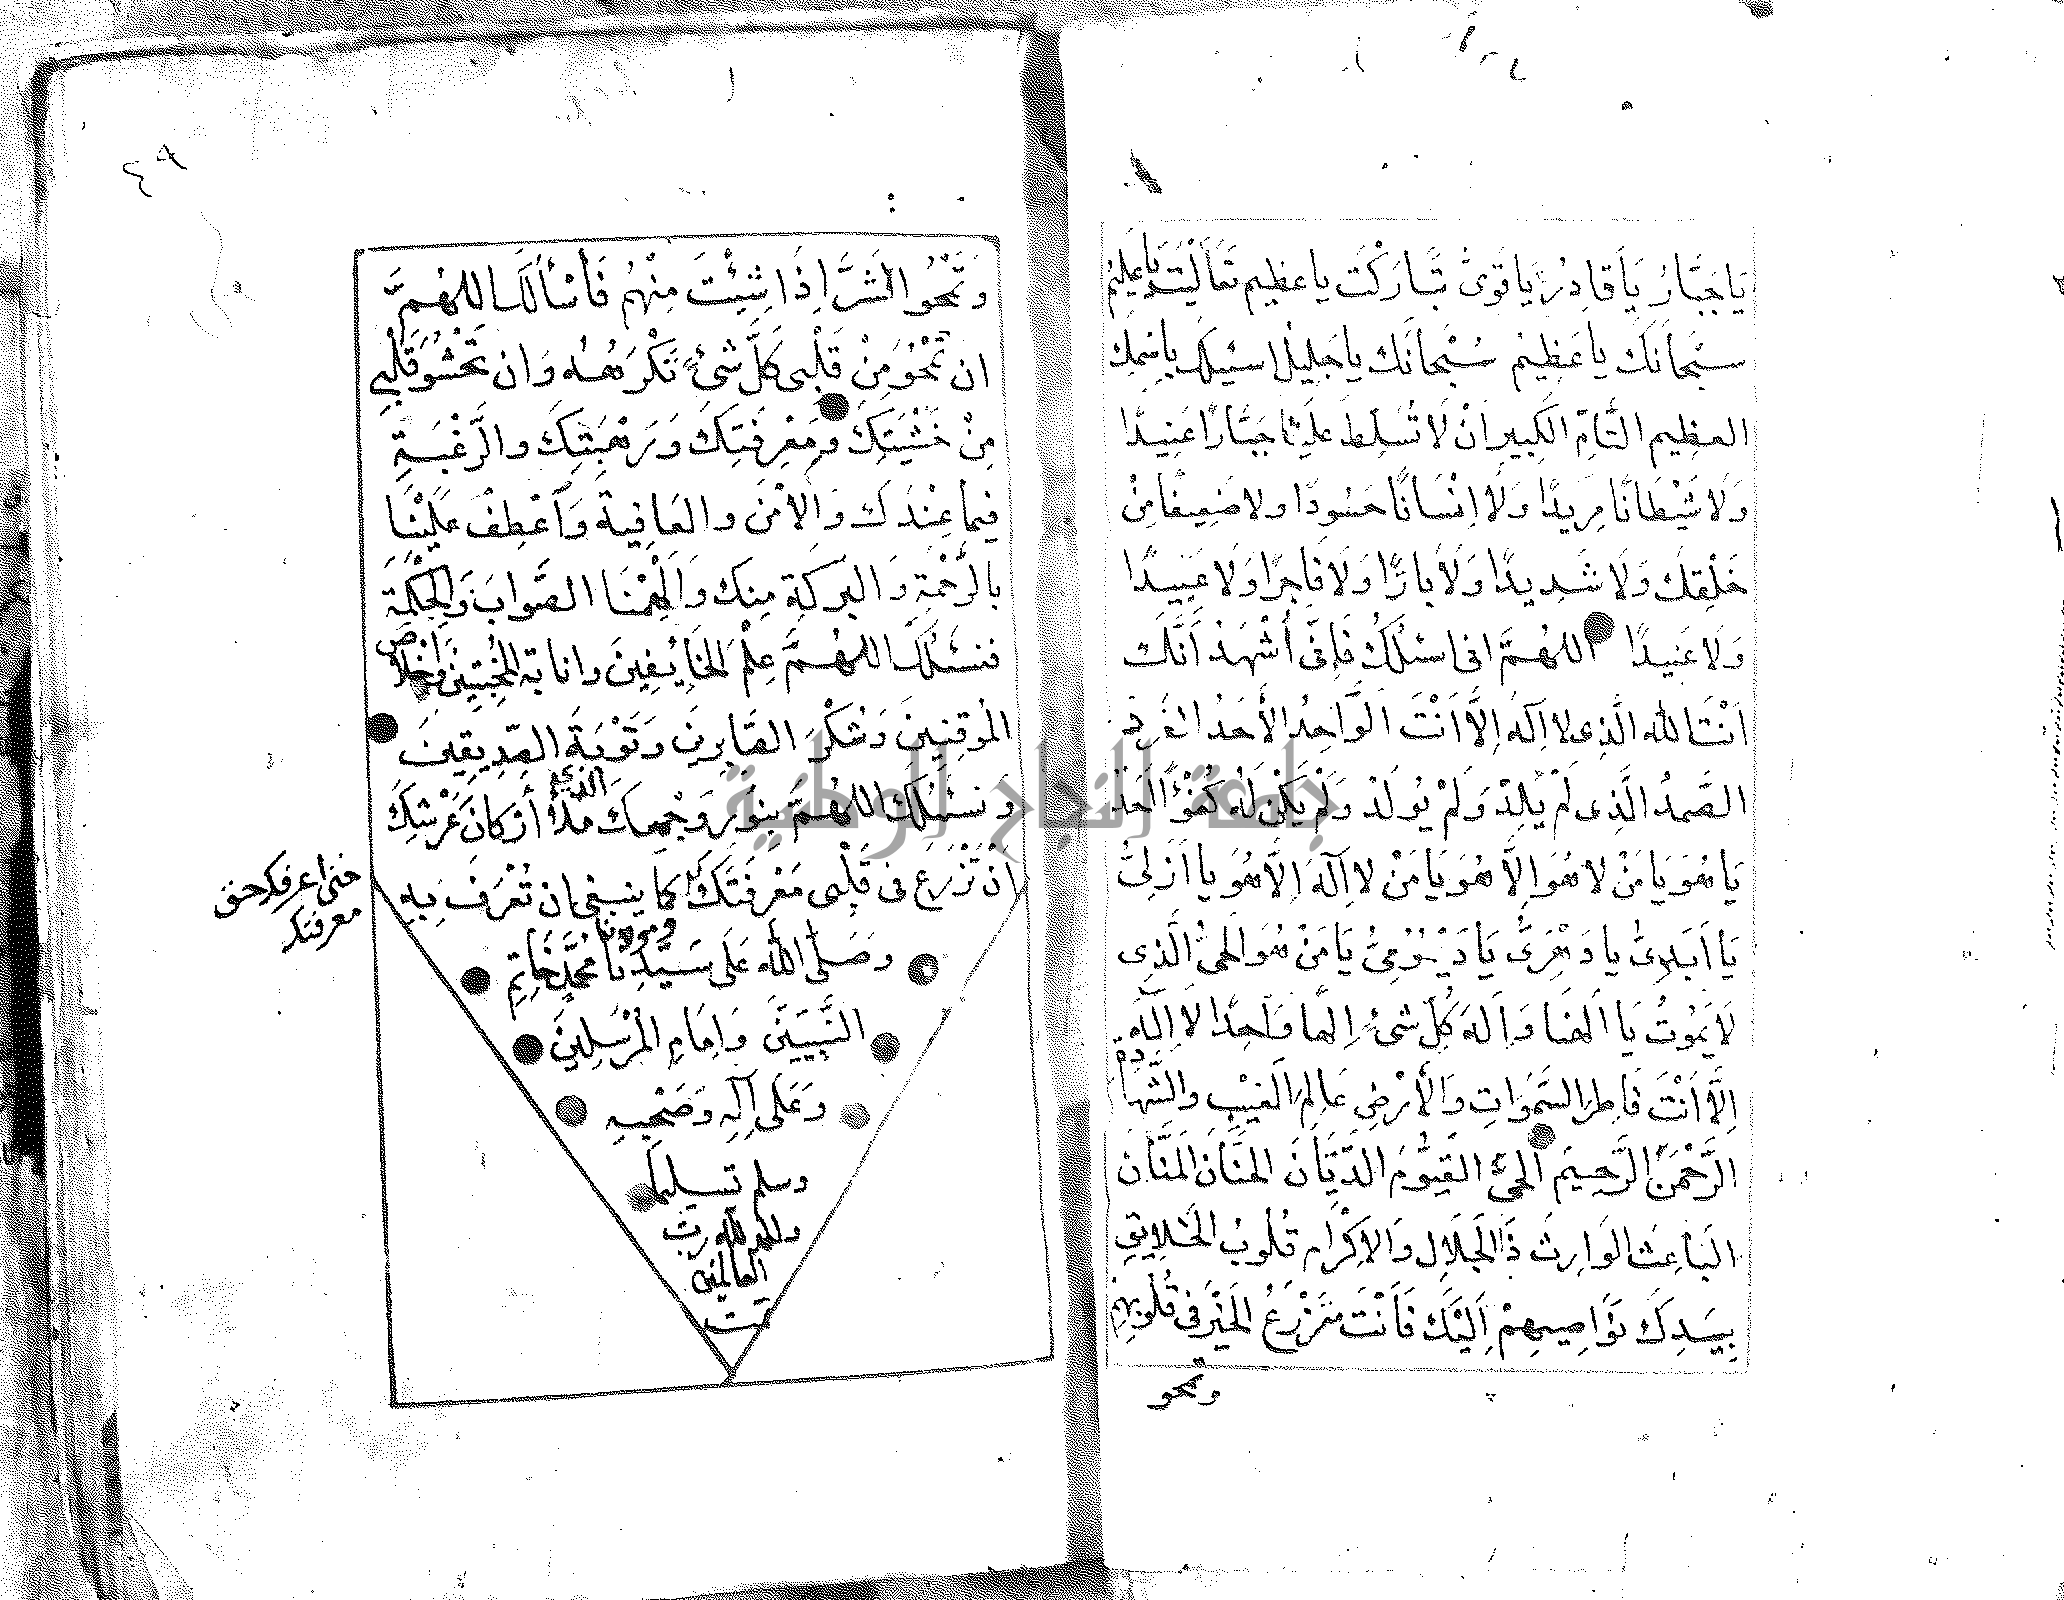 يَا جَبَّارُ يَا قَادِرُ يَا قَوِىُّ تَبَارَكْتَ يا عظيم تَعَالَيْتَ يا عَلِيمُ
سبْحَانَكَ يا عَظِيمُ سُبْحَانَكَ يا جَلِيلُ اسئلك باسْمِكَ
العظيم التَّامِّ الكَبِيرِ انْ لَا تُسَلِّطْ عَلَيْنَا جَبَّارًا عَنِيدًا
وَلَا شَيْطَانًا مَرِيدًا وَلَا اِنْسَانًا حَسُودًا ولا ضَعِيفًا مِنْ
خَلْقِكَ وَلَا شَدِيدًا وَلَا بَارًّا وَلَا فَاجِرًا وَلَا عَبِيدًا
وَلَا عَنِيدًا اللهُمَّ انى اسئلُكَ فَإِنِّى أَشْهَدُ أَنَّكَ
اَنْتَ الله الَّذِى لا اِلَهَ اِلَّا اَنْتَ الوَاحِدُ الأَحَدُ الفَرْدُ
الصَّمَدُ الَّذِى لَمْ يَلِدْ وَلَمْ يُولَدْ وَلَمْ يَكُنْ لَهُ كُفُوًا اَحَدْ
يَا هُوَ يَا مَنْ لا هُوَ اِلَّا هُوَ يَا مَنْ لا اِلَهَ اِلَّا هُوَ يا اَزَلِىُّ
يَا اَبَدِىُّ يا دَهْرِىُّ يَا دَيْمُومِىُّ يَا مَنْ هُوَ الحَىُّ الَّذِى
لَا يَمُوتُ يَا الهنَا وَاِلَهَ كُلِّ شىْءٍ اِلها وَاحِدًا لَا اِلَهَ
اِلَّا اَنْتَ فَاطِرَ السَّمَوَاتِ وَالأَرْضِ عَالِمَ الغَيْبِ والشَّهَادة
الرَّحْمَنَ الرَّحِيمَ الحَىَّ القَيُّومَ الدَّيَّانَ الحَنَّانَ المَنَّانَ
البَاعِثَ الوَارِثَ ذَا الجَلَالِ وَالاِكْرَامِ قُلُوبُ الخَلَايِقِ
بِيَدِكَ نَوَاصِيهِمْ اِلَيْكَ فَأَنْتَ تَزْرَعُ الخَيْرَ فى قُلُوبِهِمْ
وتمحو
٤٩
وَتَمْحُو الشَّرَّ اِذَا شِئْتَ مِنْهُمْ فَأَسْأَلُكَ اللهُمَّ
ان تَمْحُوَ مِنْ قَلْبِى كُلَّ شَىْءٍ تَكْرَهُهُ وَان تَحْشُوَ قَلْبِي
مِنْ خَشْيَتِكَ وَمَعْرِفَتِكَ وَرَهْبَتِكَ والرَّغْبَةِ
فِيمَا عِنْدَكَ وَالاَمْنَ والعَافِيةَ وَاَعْطِفْ عَلَيْنَا
بالرَّحْمَةِ وَالبَرَكَةِ مِنكَ وَاَلْهِمْنَا الصَّوَابَ وَالحِكْمَةَ
فنسئلكَ اللهُمَّ عِلْمَ الخَايِفِينَ وانابة المُخْبِتِينَ واخْلَاص
المُوقِنِينَ وَشُكْرَ الصَّابِرِينَ وَتَوْبَةَ الصِّدِيقِينَ
وَنسئلك اللهُمَّ بِنُورِ وَجْهِكَ الذى مَلَأَ أَرْكَانَ عَرْشِكَ
اَنْ تَزْرَعَ فى قَلْبِى مَعْرِفَتَكَ كما ينبغى ان تُعْرَفَ بِهِ
حتى اعرفك حق
معرفتك
وَصَلَّى اللَّهُ عَلَى سَيِّدِنَا ومولانا مُحَمَّدٍ خَاتِمِ
النَّبِيِّينَ وَاِمَامِ المُرْسَلِينَ
وَعَلَى آلِهِ وَصَحْبِهِ
وسلم تسليما
والحمد لله رب
العالمين
تمت
جامعة النجاح الوطنية